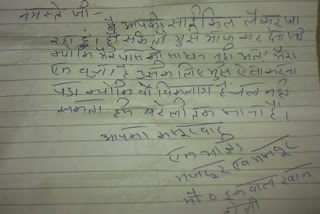 नमस्ते जी -
मैं आपकी साईकिल लेकर जा
रहा हूं। हो सके तो मुझे माफ कर देना जी
क्योंकि मेरे पास को साधन नहीं मेरा
एक बच्चा है उसके लिए मुझे ऐसा करना
पड़ा क्योंकि वो विकलांग है चल नहीं
सकता हमें बरेली तक जाना है।
आपका कसूरवार
एक यात्री
मजदूर एवं मजबूर
मो० इकबाल खान
बरेली